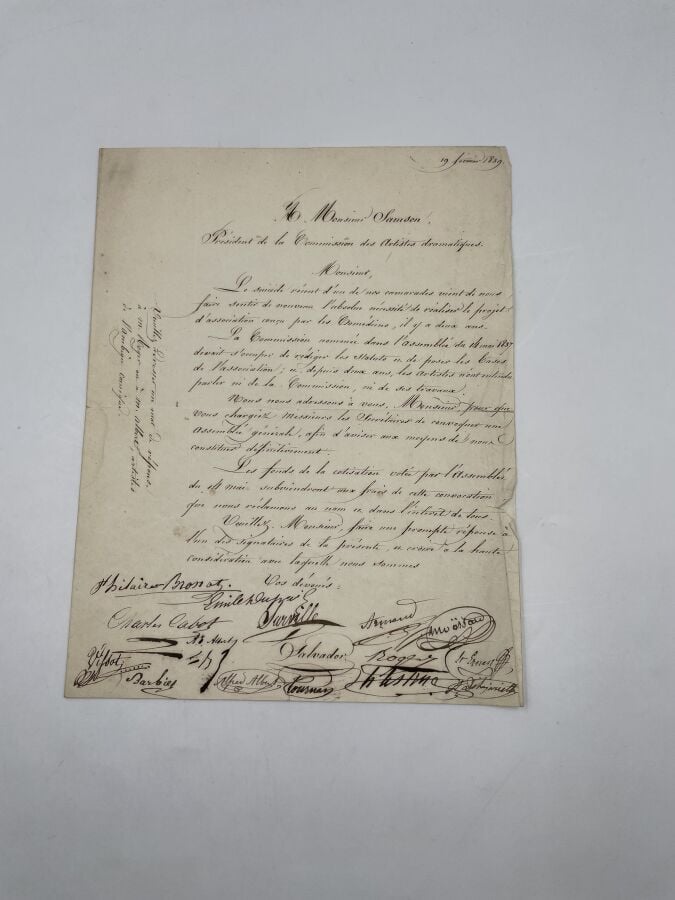 19 février 1839
A Monsieur Samson.
Président de la Commission des Artistes dramatiques.
Monsieur,
Le suicide récent d'un de nos camarades vient de nous
faire sentir de nouveau l'absolue nécessité de réaliser le projet
d'association conçu par les Comédiens, il y a deux ans.
La Commission nommée dans l'Assemblée du 14 mai 1837
devait s'occuper de rédiger les Statuts et de poser les bases
de l'association; et depuis deux ans, les Artistes n'ont entendu
parler ni de la Commission, ni de ses travaux.
Nous nous adressons à vous, Monsieur, pour que
vous chargiez Messieurs les Secrétaires de convoquer une
Assemblée générale, afin d'aviser aux moyens de nous
constituer définitivement.
Les fonds de la cotisation votée par l'Assemblée
du 14 mai subviendront aux frais de cette convocation
que nous réclamons au nom et dans l'intérêt de tous.
Veuillez, Monsieur, faire une prompte réponse à
l'un des signataires de la présente, et croire à la haute
considération avec laquelle nous sommes
Vos dévoués:
St hilaire Bronot.
Surville
Charles Cabot
Armand
Salvador
St Ernest
Barbier
Alfred Albert
Tournan
Veuillez adresser un mot de réponse
à M. Roger ou à M. Albert, artistes
de l'ambigu comique.